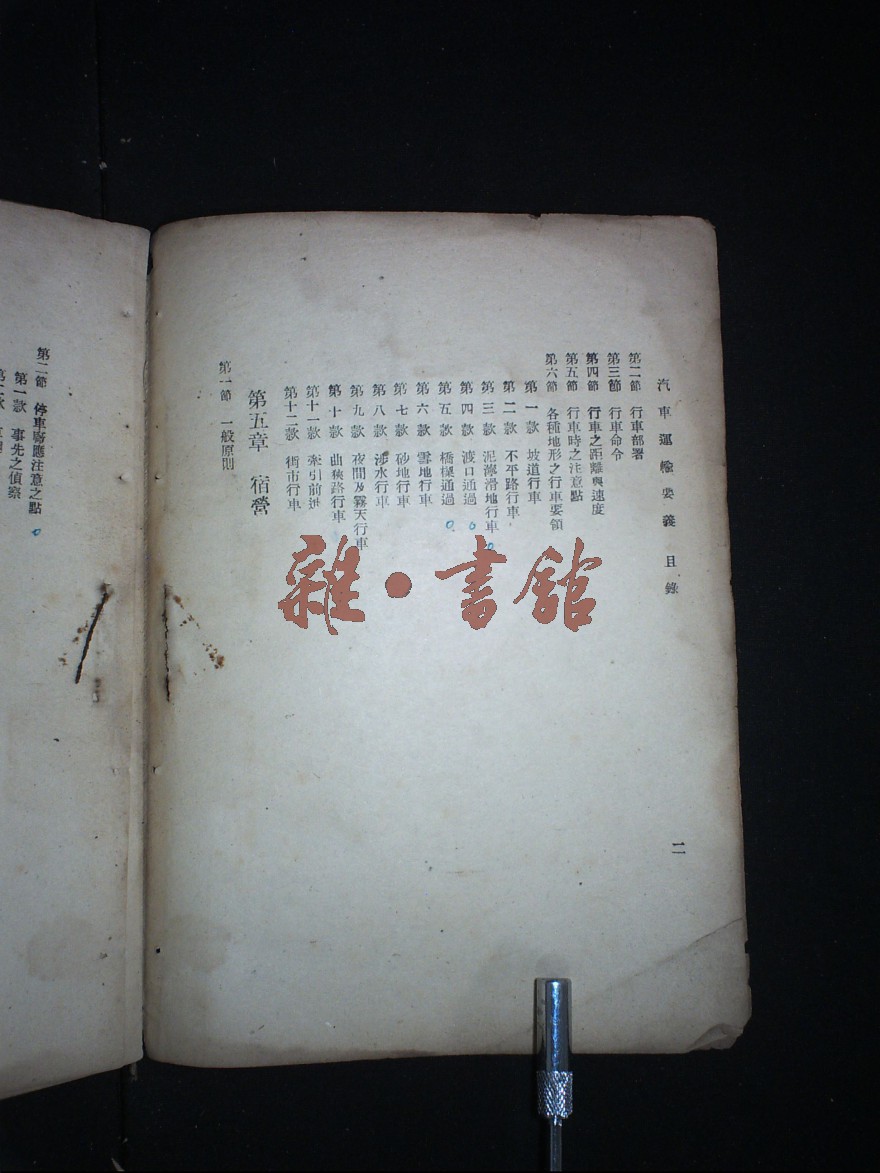 汽車運輸要義　目錄
第二節　行車部署
第三節　行車命令
第四節　行車之距離與速度
第五節　行車時之注意點
第六節　各種地形之行車要領
第一款　坡道行車
第二款　不平路行車
第三款　泥濘滑地行車
第四款　渡口通過
第五款　橋樑通過
第六款　雪地行車
第七款　砂地行車
第八款　涉水行車
第九款　夜間及霧天行車
第十款　曲狹路行車
第十一款　牽引前進
第十二款　街市行車
第五章　宿營
第一節　一般原則
二
第二節　停車時應注意之點
第一款　事先之偵察
雜·書館